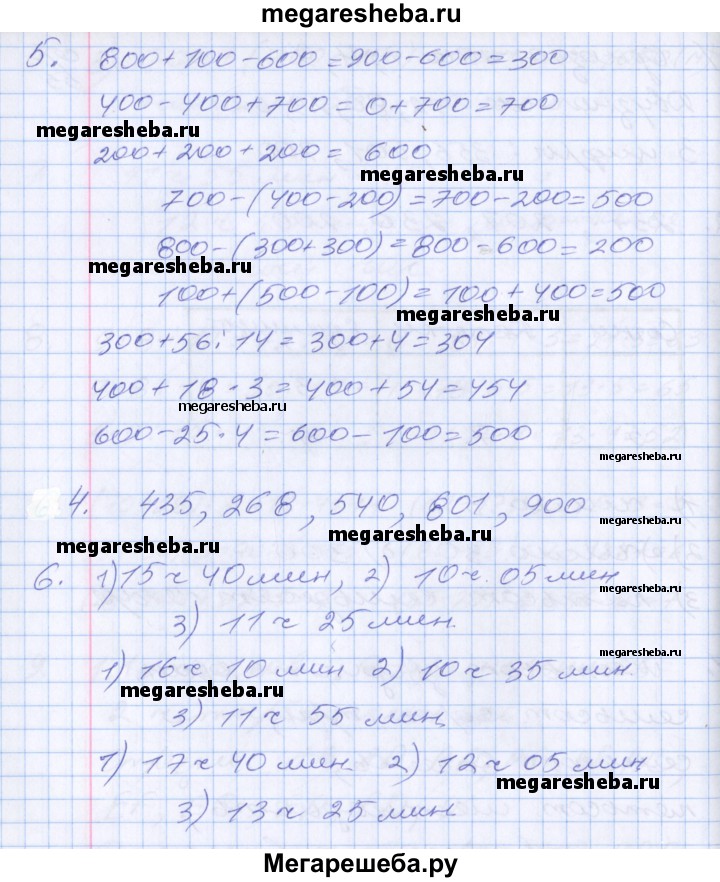 megaresheba.ru
5. 800+100-600=900-600=300
400-400+700=0+700=700
megaresheba.ru
200+200+200= 600
megaresheba.ru
700-(400-200)=700-200=500
800-(300+300)=800-600=200
megaresheba.ru
100+(500-100)=100+400=500
megaresheba.ru
300+56:14=300+4=304
400+18·3=400+54=454
megaresheba.ru
600-25·4=600-100=500
megaresheba.ru
4. 435, 268, 540, 801, 900
megaresheba.ru
megaresheba.ru
megaresheba.ru
6. 1) 15 ч 40 мин, 2) 10 ч. 05 мин
megaresheba.ru
3) 11 ч 25 мин.
megaresheba.ru
1) 16 ч 10 мин 2) 10 ч 35 мин.
megaresheba.ru
3) 11 ч 55 мин.
1) 17 ч 40 мин. 2) 12 ч 05 мин.
megaresheba.ru
3) 13 ч 25 мин.
Мегарешеба.ру